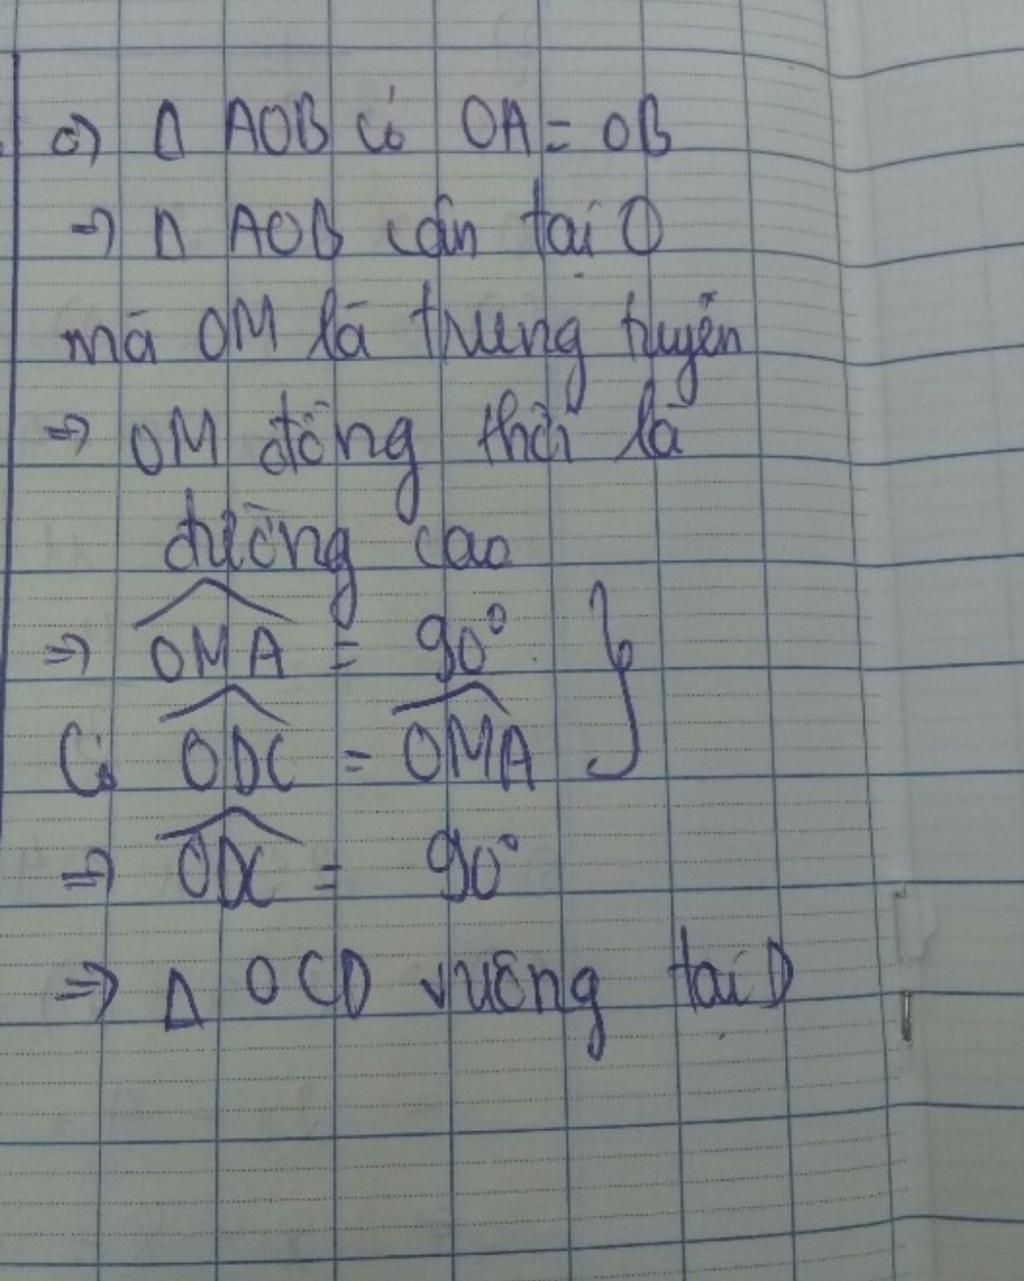 c) Δ AOB có OA = OB
⇒ Δ AOB cân tại O
mà OM là trung tuyến
⇒ OM đồng thời là
đường cao
⇒ \widehat{OMA} = 90°
Có \widehat{ODC} = \widehat{OMA} }
⇒ \widehat{ODC} = 90°
⇒ Δ OCD vuông tại D